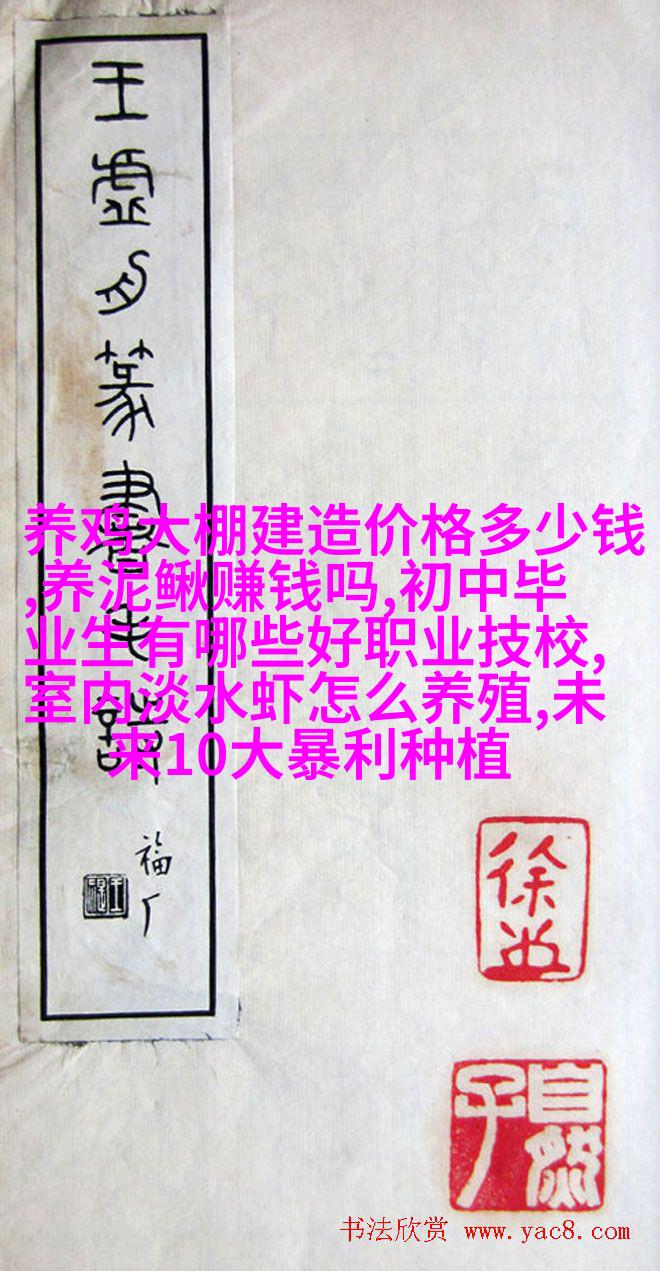 王虚舟篆書
福厂
养鸡大棚建造价格多少钱
,养泥鳅赚钱吗,初中毕
业生有哪些好职业技校,
室内淡水虾怎么养殖,未
来10大暴利种植
自然子
书法欣赏 www.yac8.com